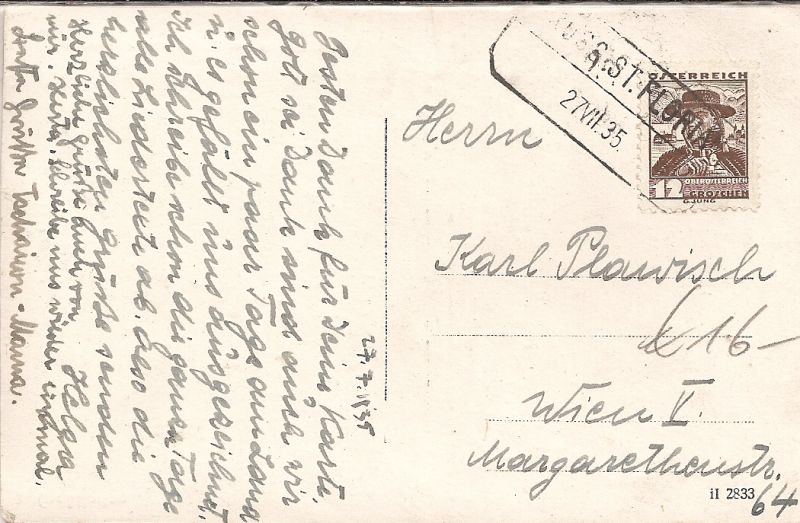 27.7.1935
Besten Dank für Deine Karte,
Gott sei Dank sind auch wir
schon ein paar Tage am Land
u. es gefällt uns ausgezeichnet.
Ich schreibe schon die ganzen Tage
alle Liedertexte ab. Also die
herzlichsten Grüße senden
Helga
Herzliche Grüße auch von
mir, Herta. Schreibe uns wieder einmal.
Grüße
Mama.
ST. FLORIAN
27.VII.35
ÖSTERREICH
12
OBERÖSTERREICH
GROSCHEN
G.JUNG
Herrn
Karl Plawisch
16-
Wien V.
Margaretenstr.
64
iI 2833